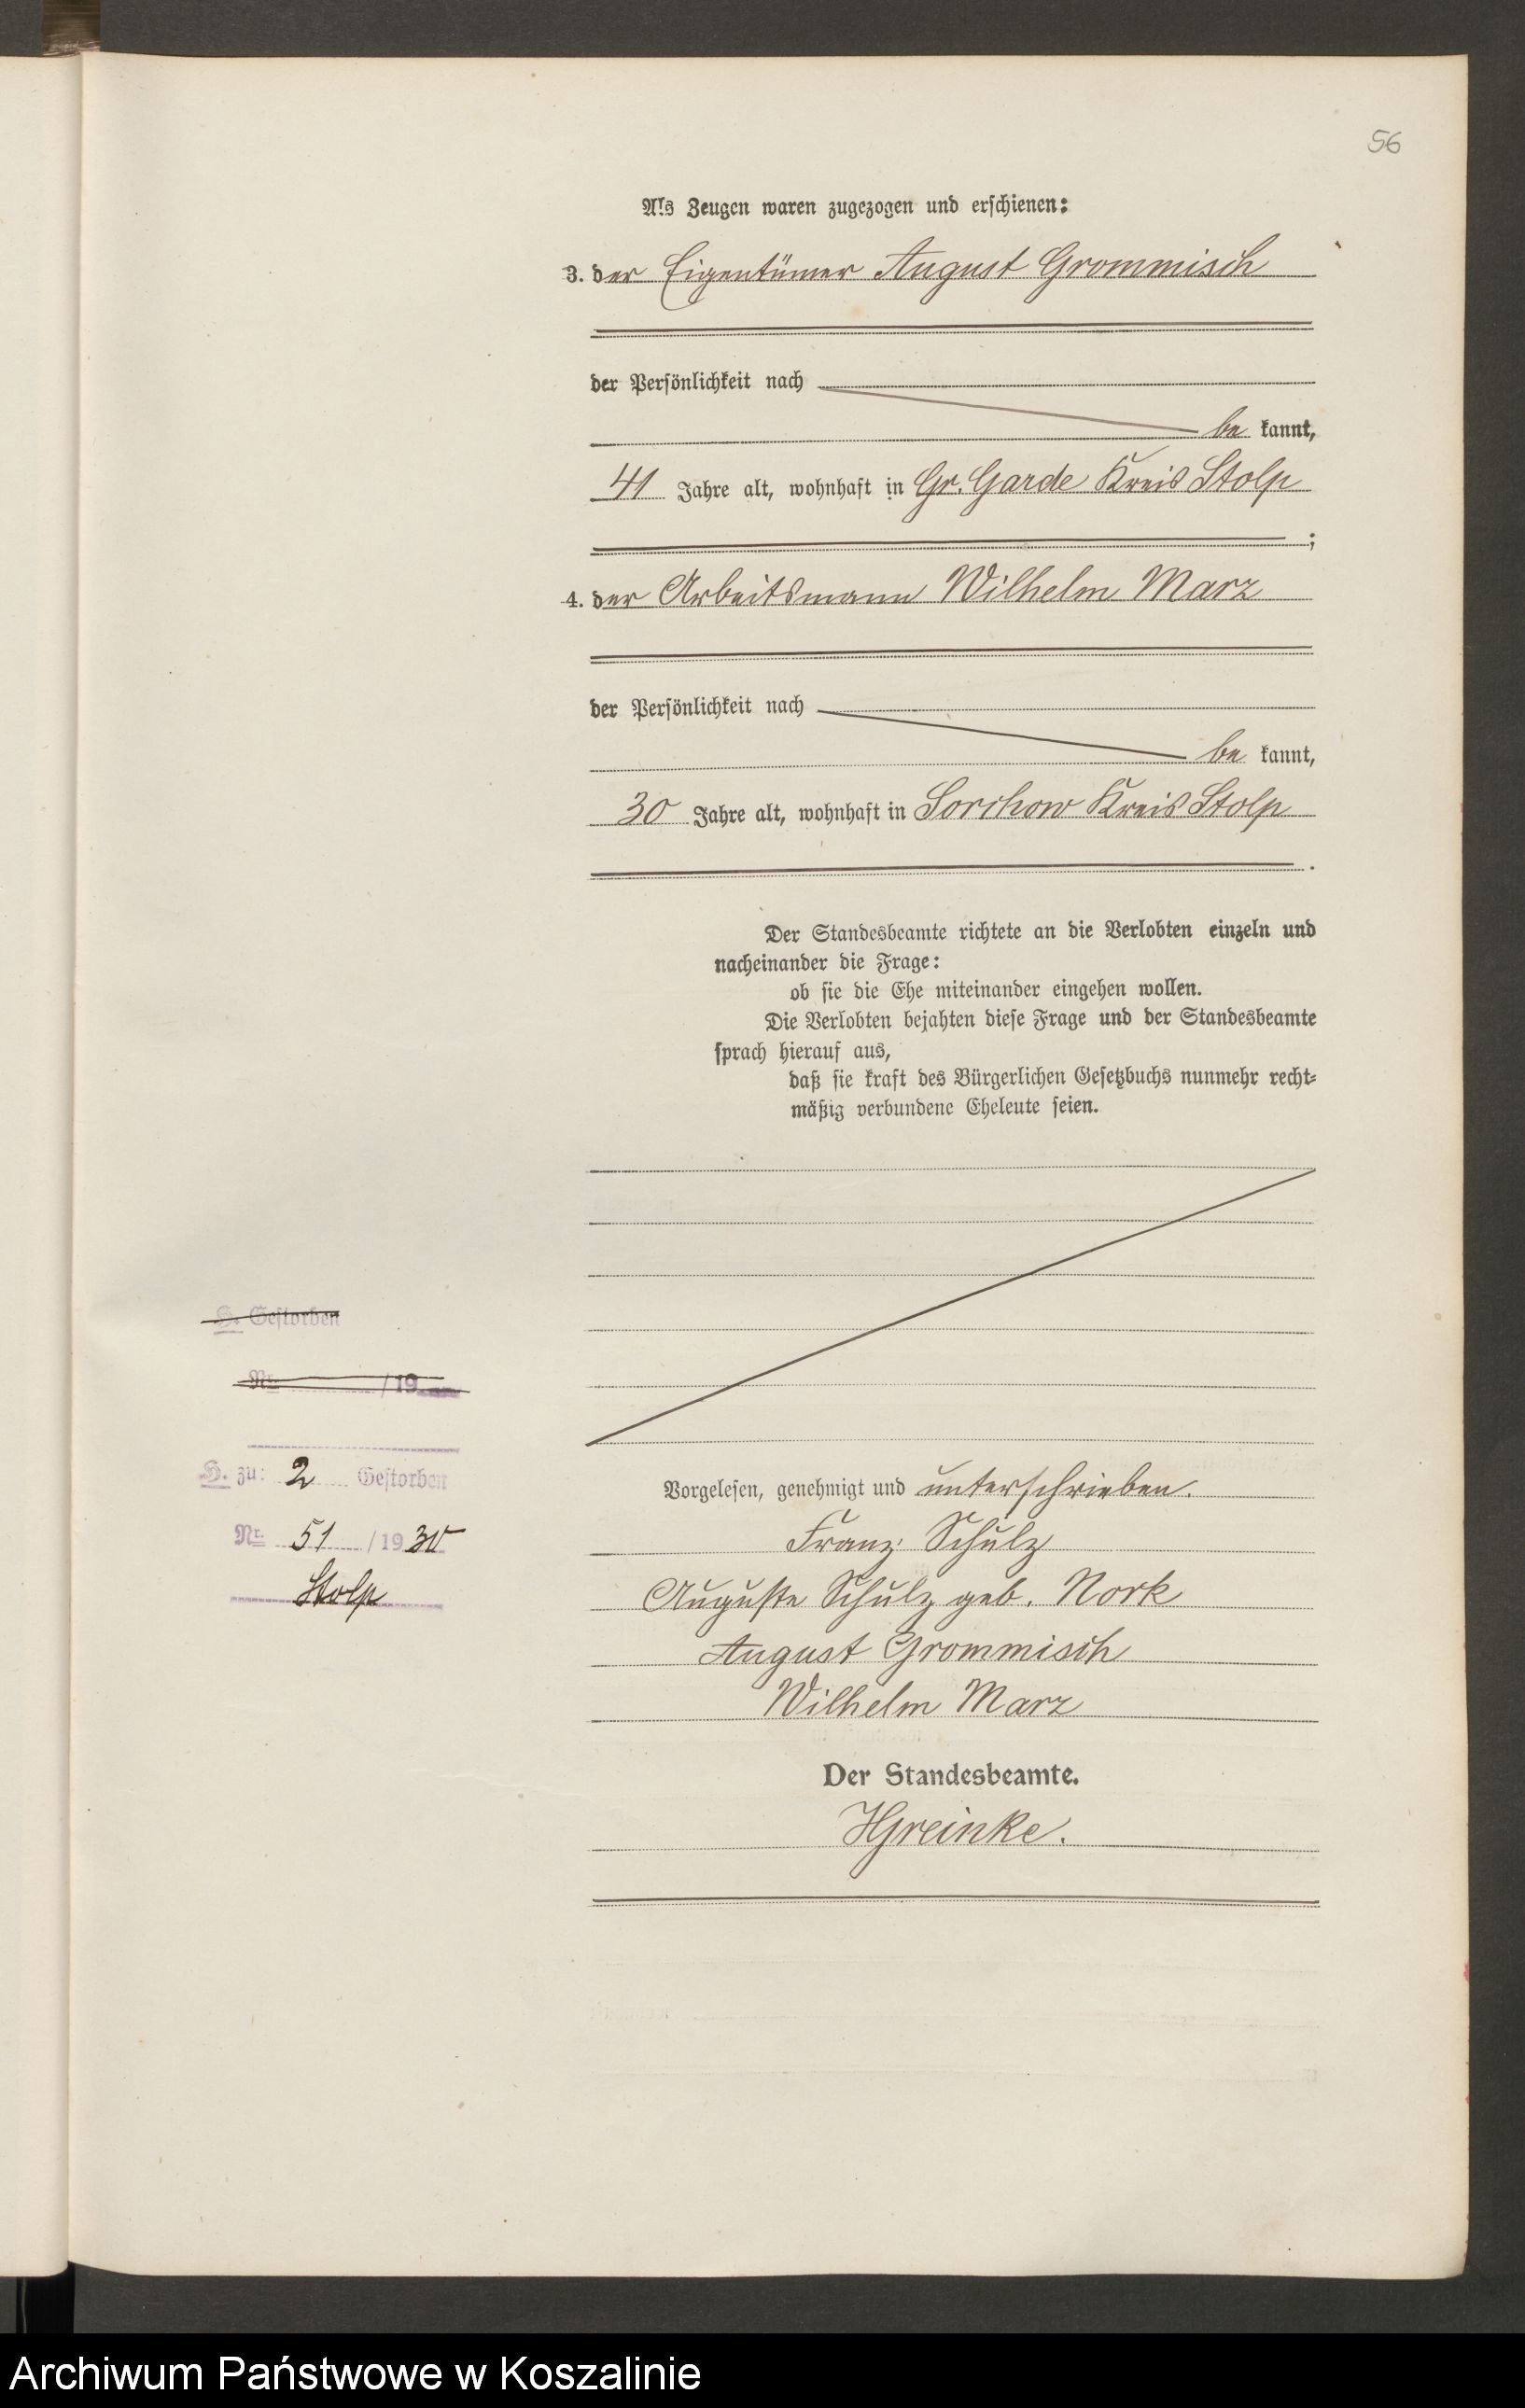 56
Als Zeugen waren zugezogen und erschienen:
3. der Eigentümer August Grommisch
der Persönlichkeit nach
be kannt,
41 Jahre alt, wohnhaft in Gr. Garde Kreis Stolp
;
4. der Arbeitsmann Wilhelm Marz
der Persönlichkeit nach
be kannt,
30 Jahre alt, wohnhaft in Sorchow Kreis Stolp
.
Der Standesbeamte richtete an die Verlobten einzeln und
nacheinander die Frage:
ob sie die Ehe miteinander eingehen wollen.
Die Verlobten bejahten diese Frage und der Standesbeamte
sprach hierauf aus,
daß sie kraft des Bürgerlichen Gesetzbuchs nunmehr recht-
mäßig verbundene Eheleute seien.
H. Gestorben
Nr. /19
H. zu: 2 Gestorben
Nr. 51 /19 30
Stolp
Vorgelesen, genehmigt und unterschrieben.
Franz Schulz
Auguste Schulz geb. Nork
August Grommisch
Wilhelm Marz
Der Standesbeamte.
HGreinke.
Archiwum Państwowe w Koszalinie